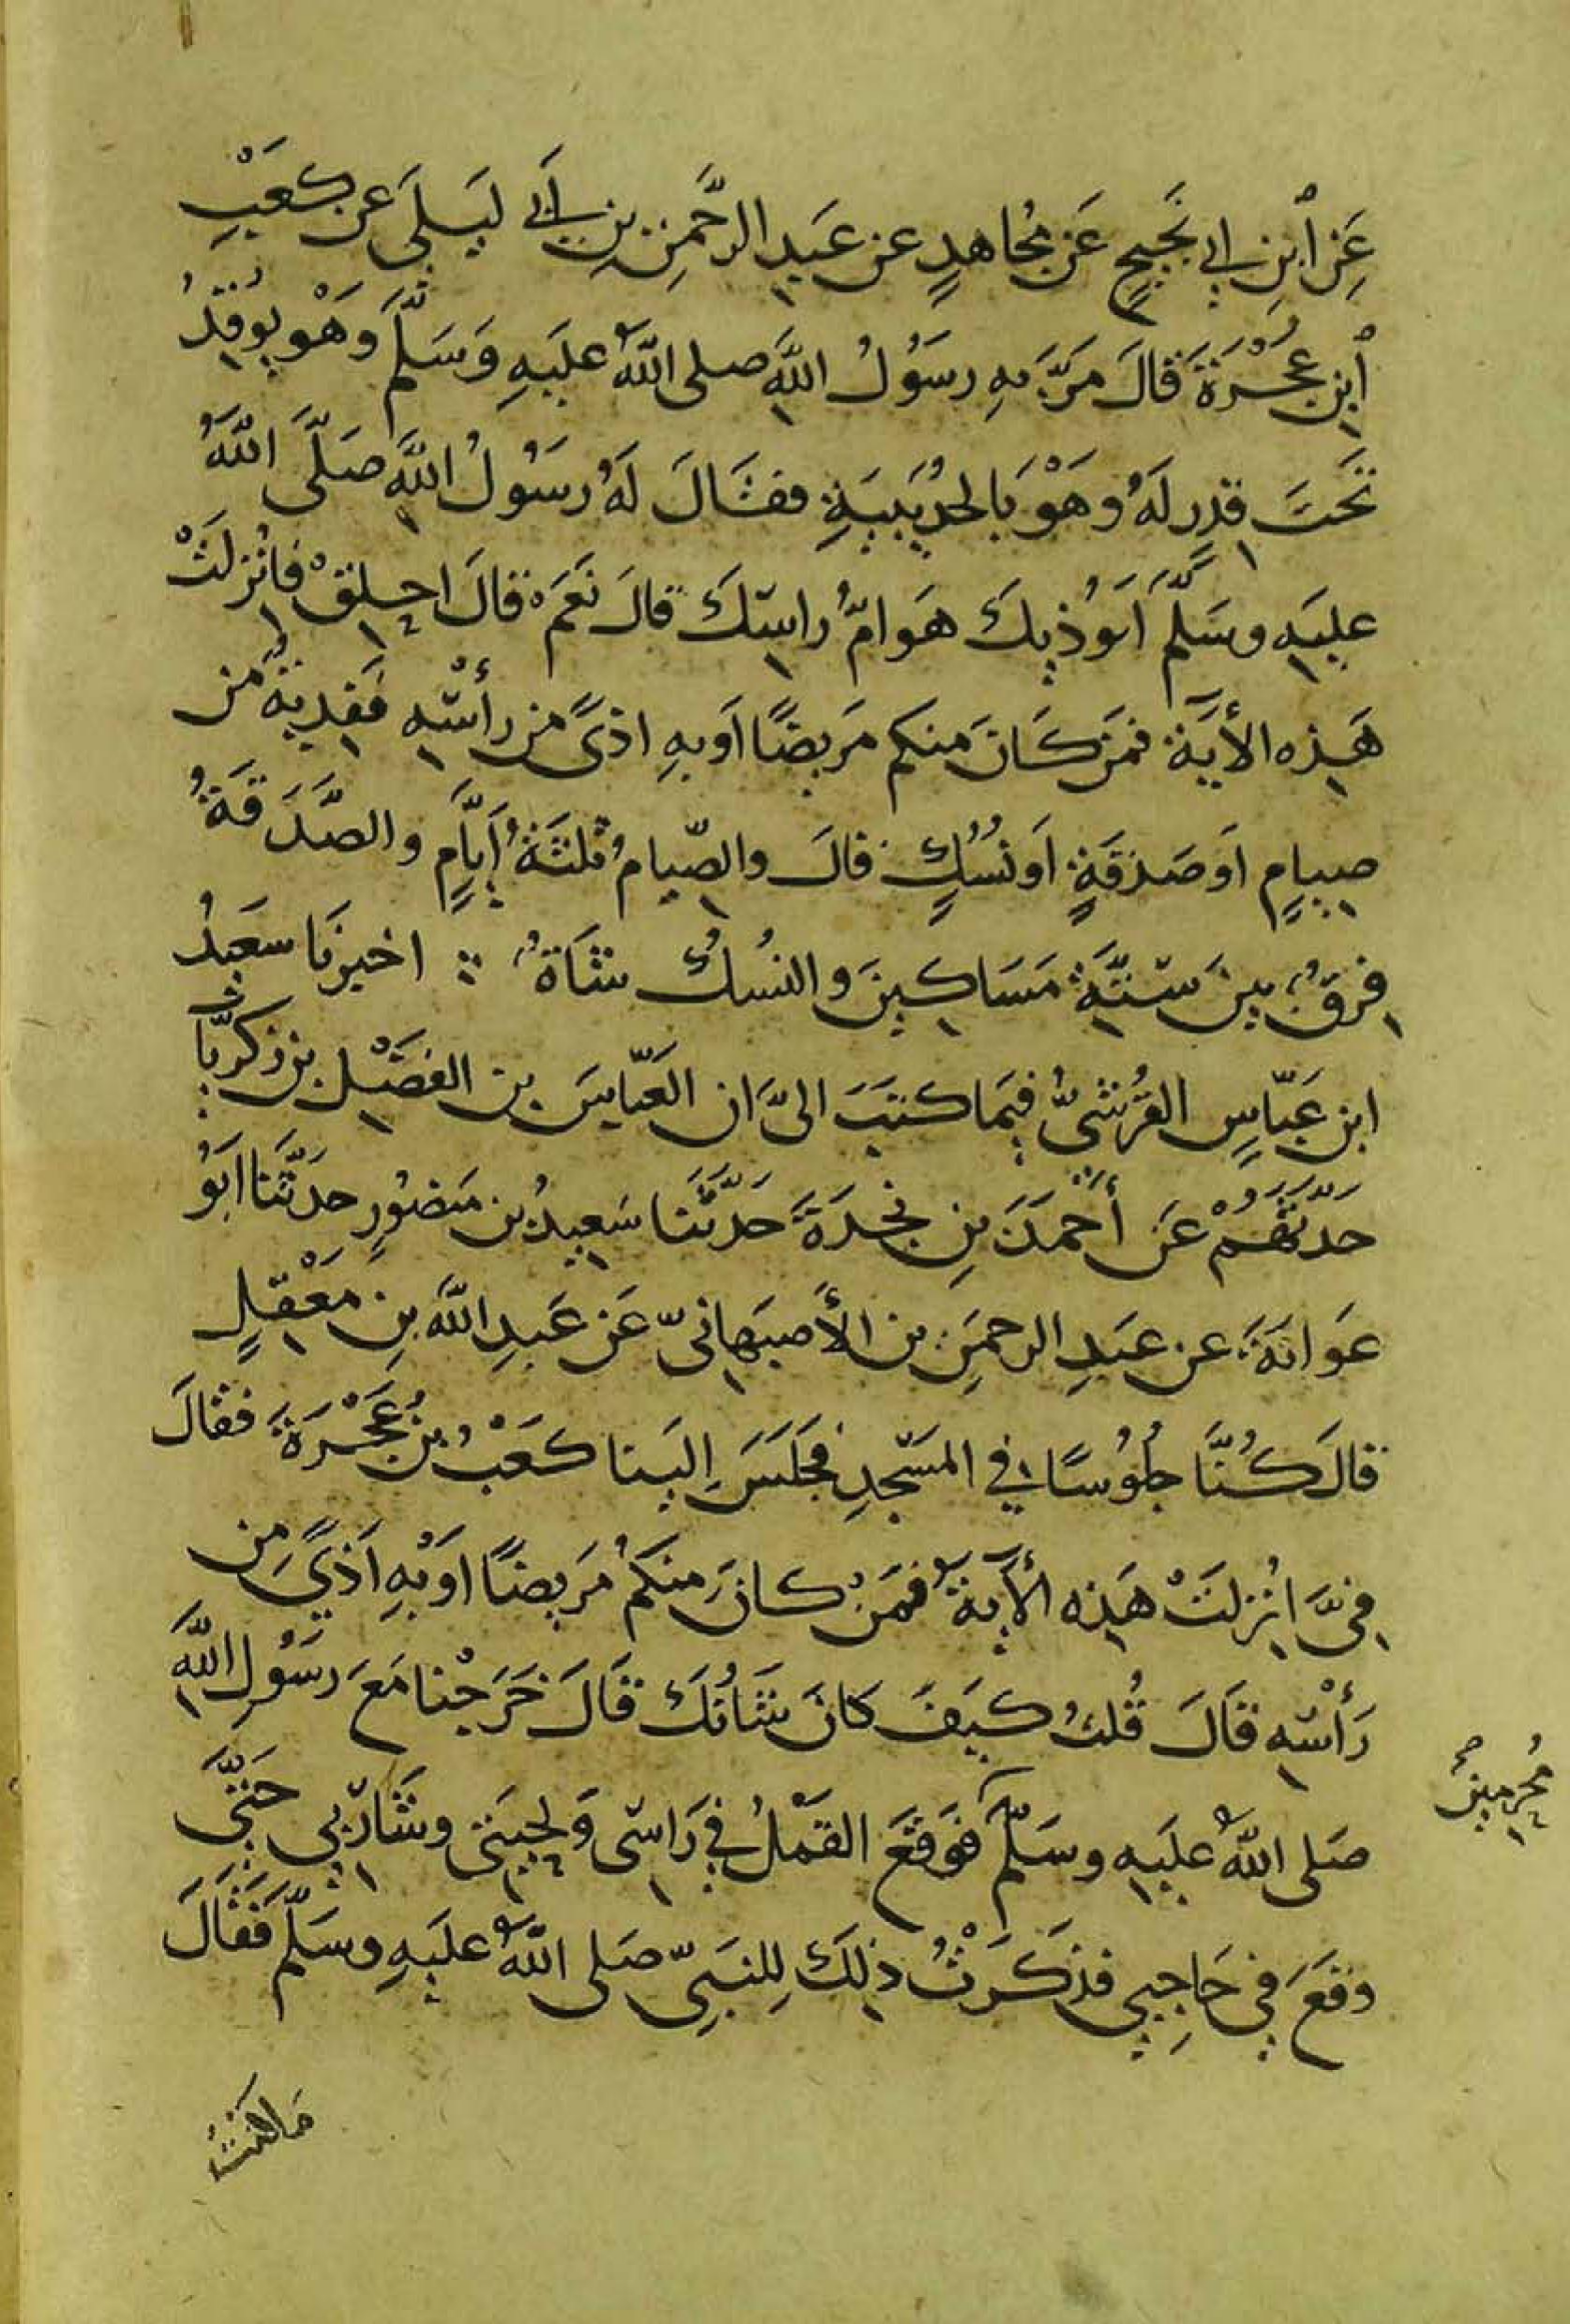 عَنِ ٱبنِ ابي نَجيحٍ عَن مُجاهدٍ عن عَبدِ الرَّحمنِ بنِ أَبي لَيلَى عَن كعْبِ
ٱبنِ عُجْرَةَ قالَ مَرَّ بهِ رسَوُلُ اللَّهِ صلى اللهُ عليَهِ وَسَلَّم وَهْو يوُقِدُ
تَحتَ قِدرٍ لَهُ وهْوَ بالحُدَيبيَةِ فقالَ لَهُ رسَوُلُ اللَّهِ صَلَّى اللَّهُ
عليَهِ وسَلَّمَ اَيوُذيكَ هَوامُّ راسِكَ قالَ نَعَمْ قالَ احلِقْ فانُزلَتْ
هَذِه الأيَة فمَن كَانَ منكم مَريضًا اَوبهِ اذىً من رأسِه فَفِديةٌ من
صيامٍ اَو صَدَقَةٍ اَو نُسُكٍ قالَ والصِّيامُ ثلثَةُ أَيَّامٍ والصَّدَقَةُ
فِرقٌ بينَ سِتَّةِ مَسَاكِينَ والنُسُكُ شَاةٌ ؞ اخبرنَا سعَيدُ
ابن عَبّاسٍ القُرَشىُّ فيمَا كتبَ الىَّ اَن العَبّاسَ بن الفَضْلِ بن زكريَّا
حَدّثَهُمْ عَن أَحْمَدَ بنِ نجْدَةَ حَدَّثَنا سَعيدُ بن مَنصُورٍ حدَثَّنَا ابَوُ
عَوانَةَ عن عبَدِ الرحمَنِ بن الأَصبَهانىّ عَن عَبدِ اللَّهِ بنِ مَعْقِلٍ
قالَ كُنَّا جُلوُسًا في المسَجِدِ فجَلَسَ اِليَنا كعَبُ بنُ عُجْرَةَ فقالَ
فِىَّ انُزلَتْ هَذِه الأيَة فمَن كانَ منِكمُ مَريضًا اَوْ بهِ اَذىً مِن
رَأْسِه قالَ قُلتُ كيَفَ كَانَ شَانُكَ قالَ خَرَجْنا مَعَ رسَوُلِ اللَّهِ
صَلى اللهُ عليَهِ وسَلَّم فوَقَعَ القَمْلُ في رَاسى وَلِحيَتى وشَارِبي حَتَّى
وقَعَ في حَاجِبي فذكَرْتُ ذلِكَ لِلنَبِيّ صَلى اللهُ عليَهِ وسَلَّم فَقَالَ
مُحرِمينَ صح
ما كنتُ